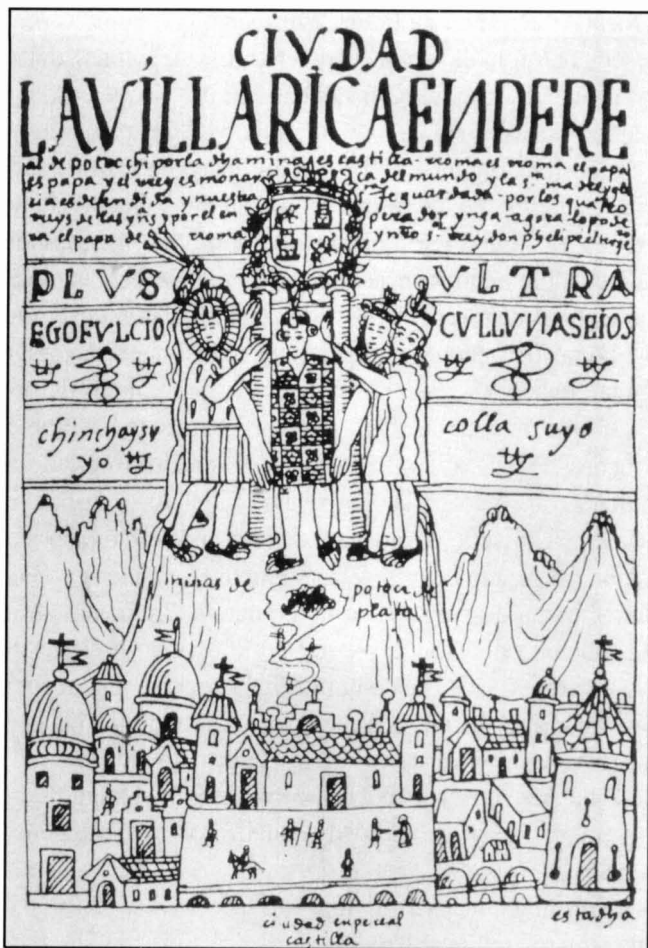 CIVDAD
LAVÍLLARÍCAENPERE
al de potocchi por la dha mina es castilla - rroma es rroma el papa
es papa y el rrey es monarca del mundo y la s.ta ma de ygle
cia es defendida y nuestra s.ta fe guardada - por los quatro
rreys de las yns y por el enperador ynga - agora lo podera
el papa de rroma y nro s.r rrey don phelipe el terze
PLVS VLTRA
EGO FVLCIO CVLLVNAS EIOS
chinchaysu
yo
colla suyo
minas de potoci de
plata
ciudad enpereal
castilla
esta dha